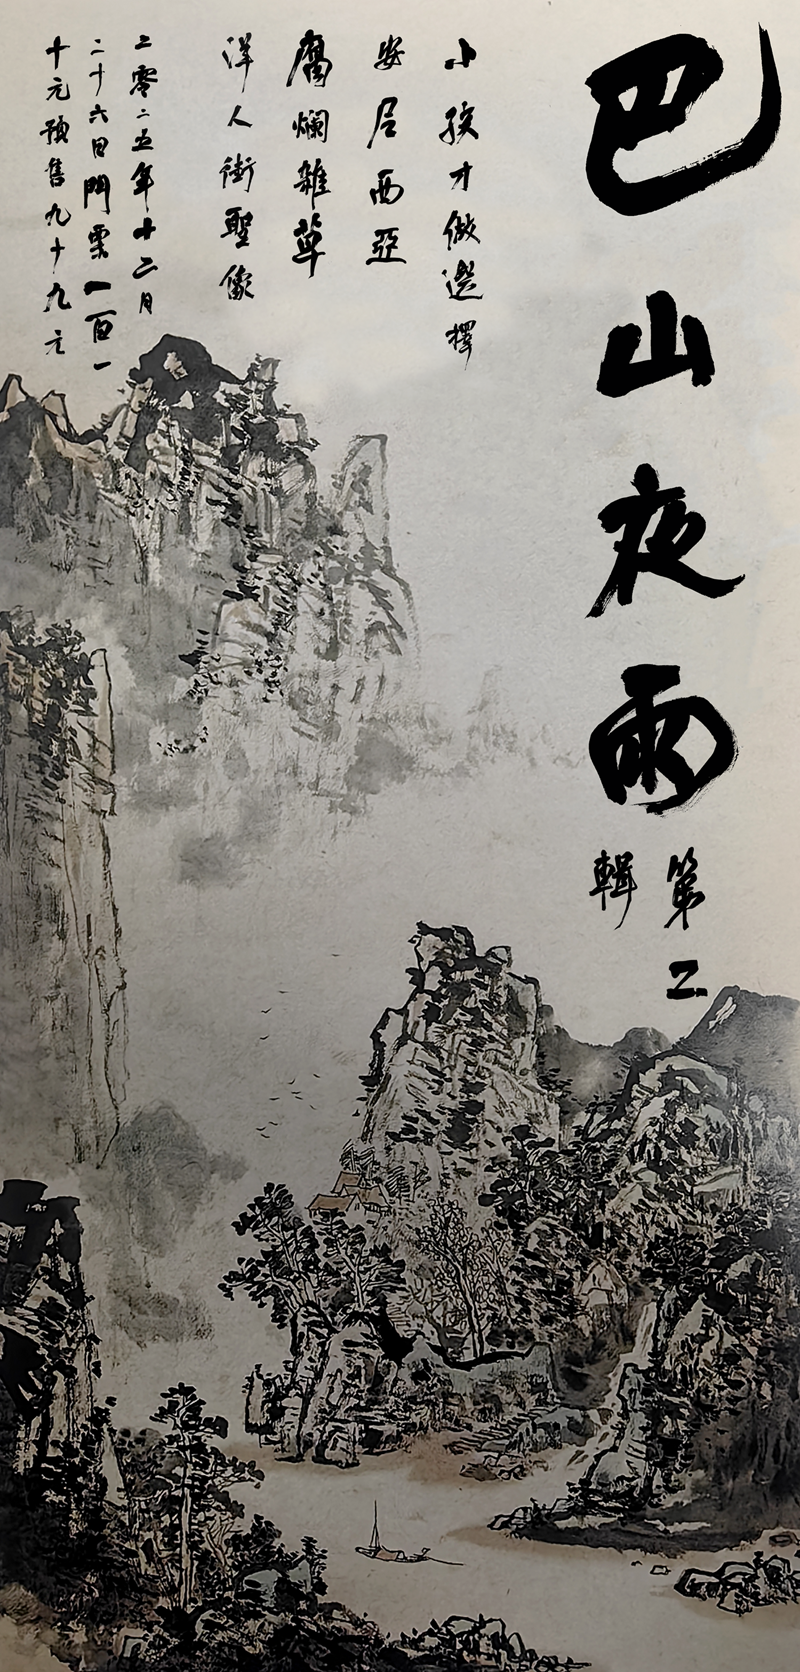 巴山夜雨
第二
輯
小孩才做選擇
安尼西亞
腐爛雜草
洋人街聖像
二零二五年十二月
二十六日門票一百一
十元預售九十九元